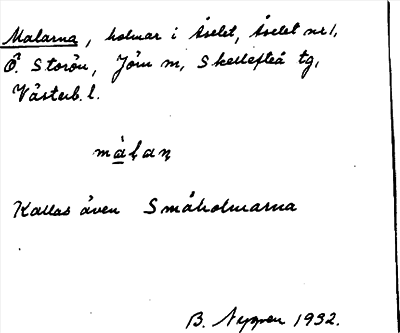 Malarna, holmar i Åselet, Åselet nr 1,
Ö. Storön, Jörn sn, Skellefteå tg,
Västerb. l.
mạlaṇ
Kallas även Småholmarna
B. 1932.